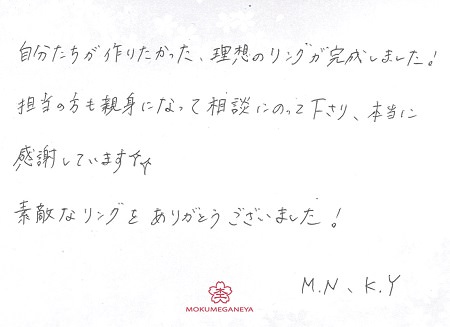 自分たちが作りたかった、理想のリングが完成しました!
担当の方も親身になって相談にのって下さり、本当に
感謝しています☆☆
素敵なリングをありがとうございました!
M.N、K.Y
MOKUMEGANEYA